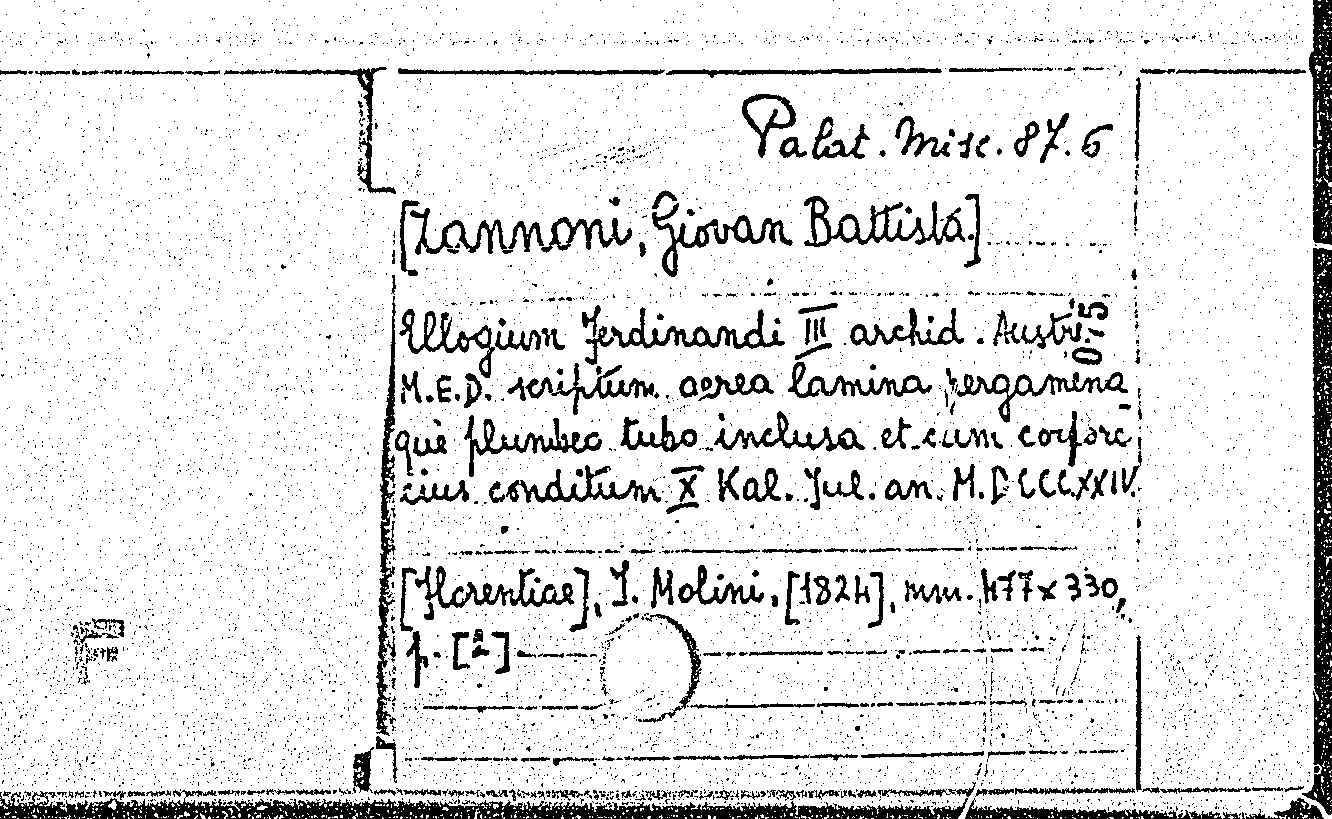 Palat. Misc. 87. 6
[Zannoni, Giovan Battista.]
Ellogium Ferdinandi III archid. Austr.
0-15
M.E.D. scriptum aerea lamina pergamena
què plumbeo tubo inclusa et cum corpore
eius conditum X Kal. Jul. an. M.DCCCXXIV.
[Florentiae], J. Molini, [1824], mm. 477x330,
p. [2]